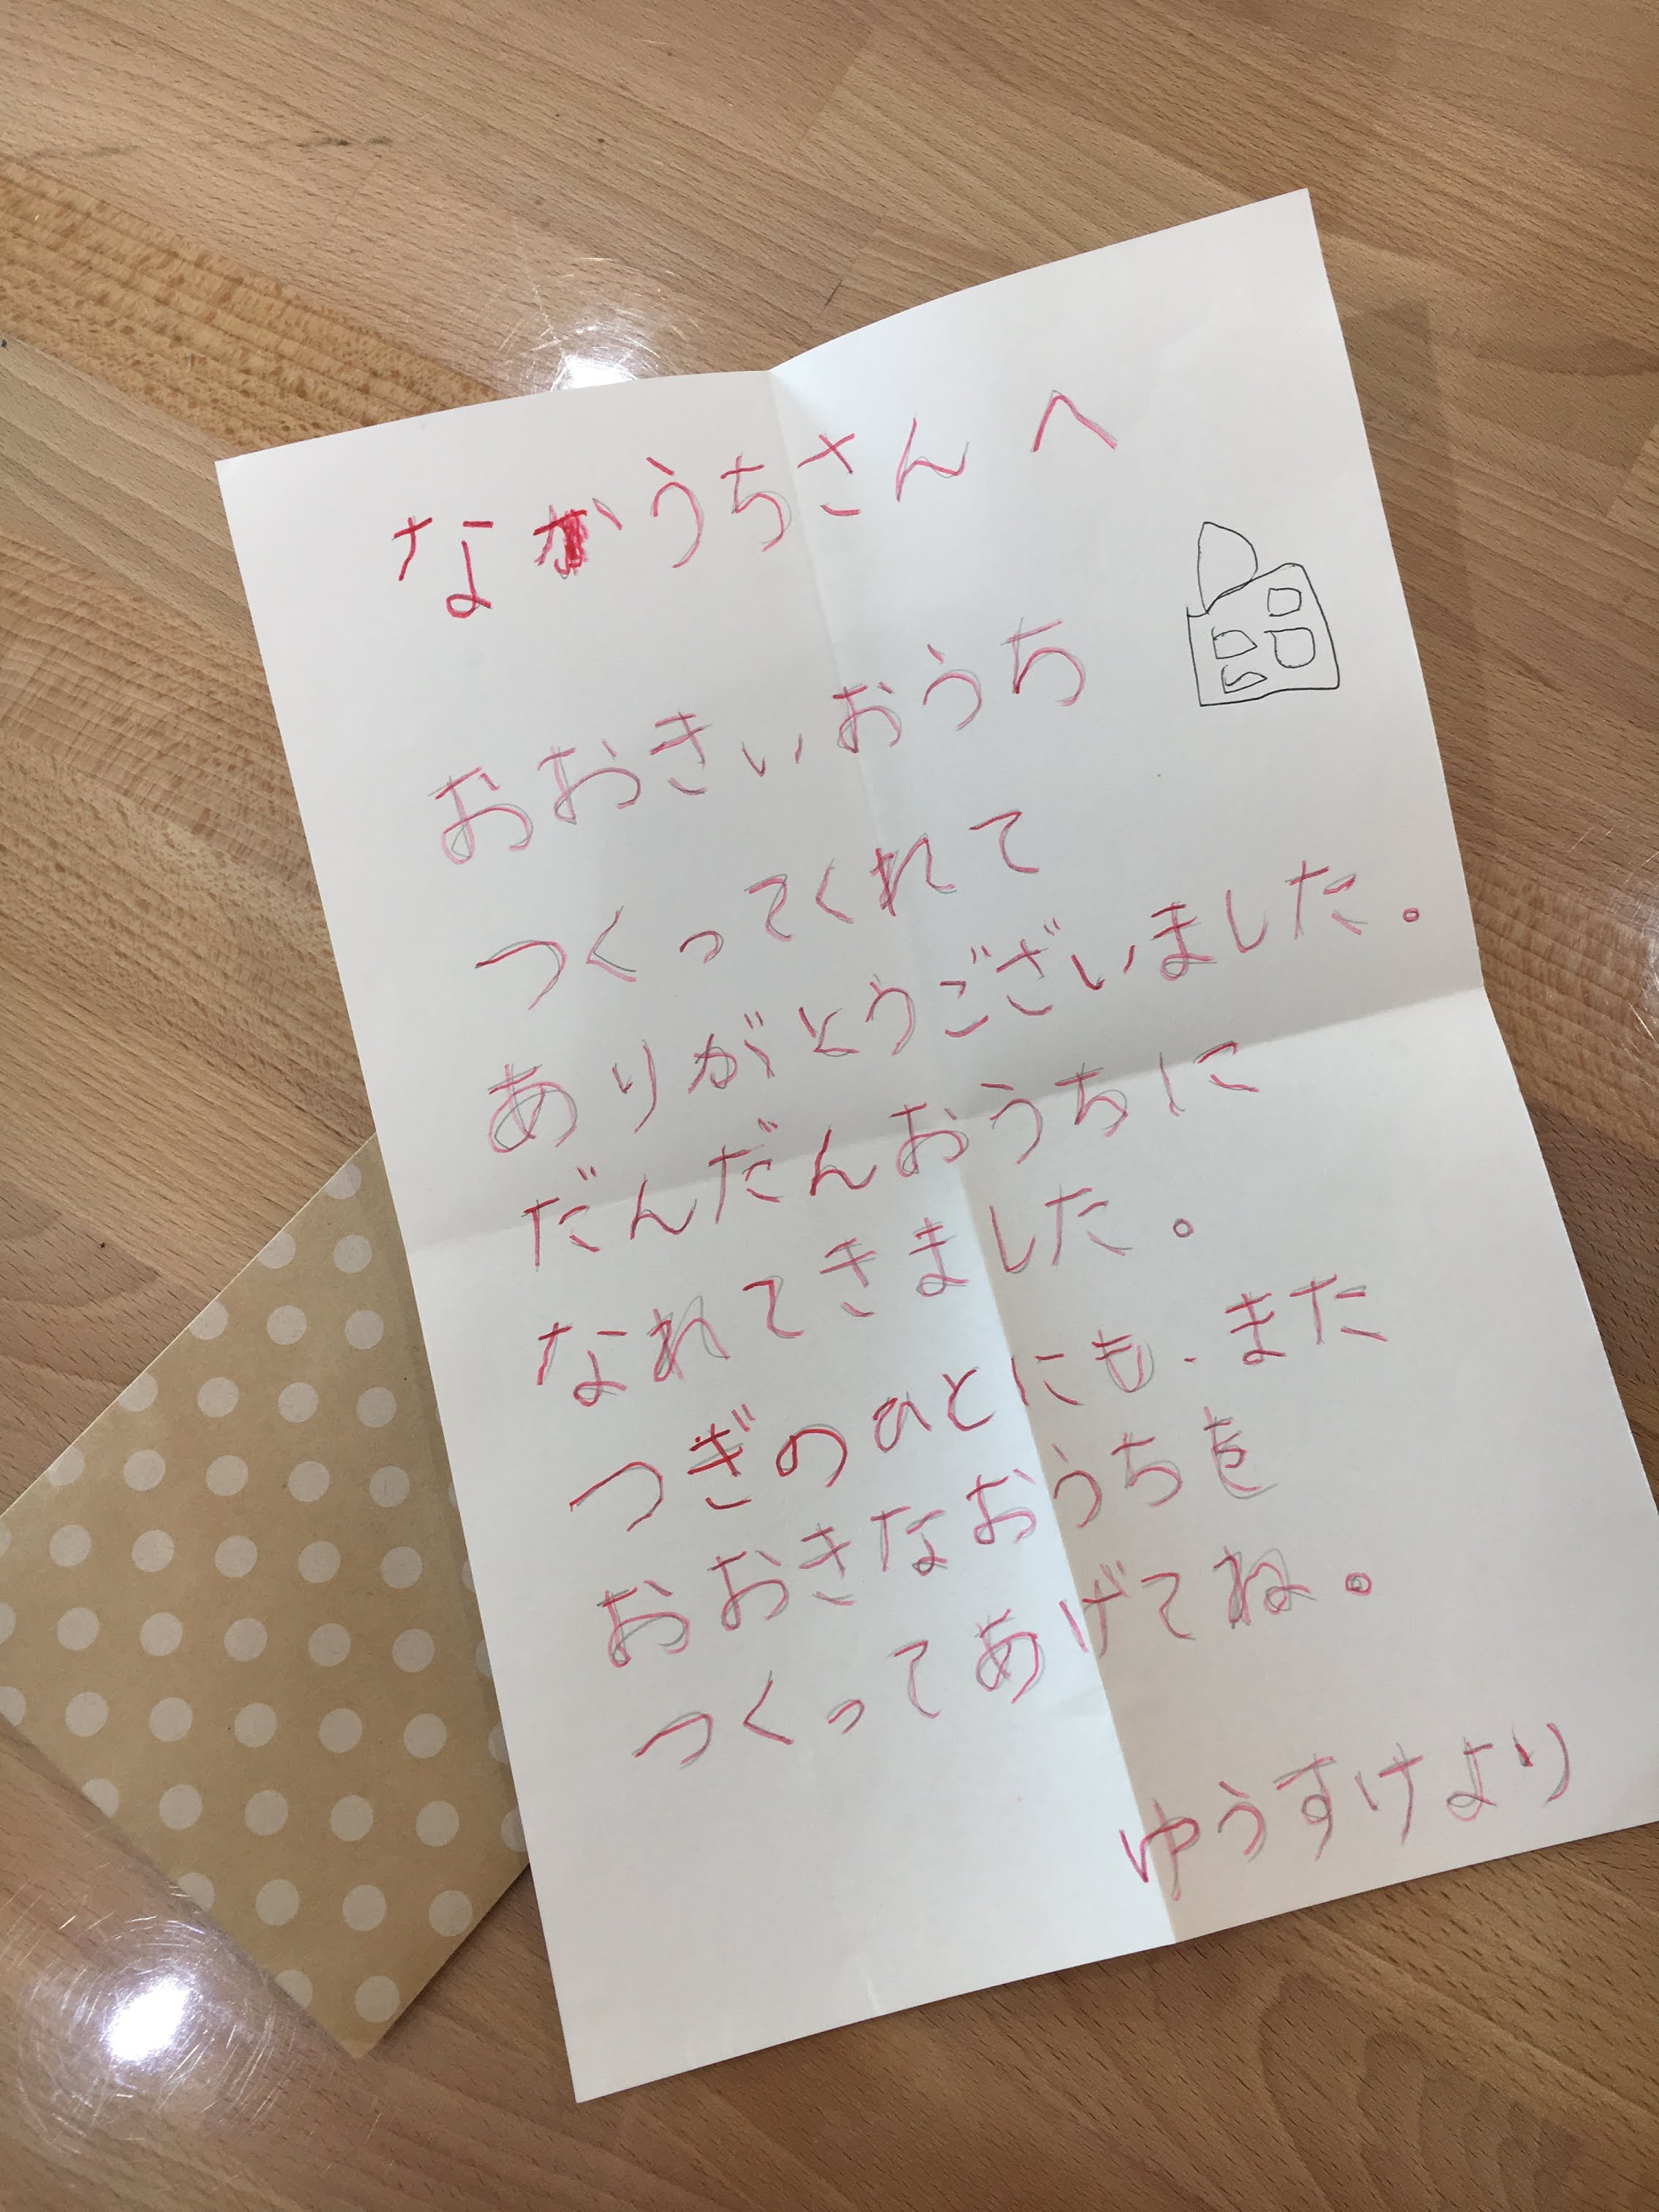 なかうちさんへ
おおきいおうち
つくってくれて
ありがとうございました。
だんだんおうちに
なれてきました。
つぎのひとにも、また
おおきなおうちを
つくってあげてね。
ゆうすけより